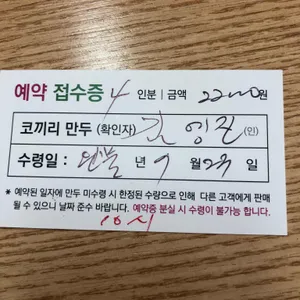 예약 접수증 4 인분 | 금액 22000원
코끼리 만두 (확인자) 김영진 (인)
수령일 : 년 9 월 29 일
* 예약된 일자에 만두 미수령 시 한정된 수량으로 인해 다른 고객에게 판매
될 수 있으니 날짜 준수 바랍니다. 예약증 분실 시 수령이 불가능 합니다.
10시